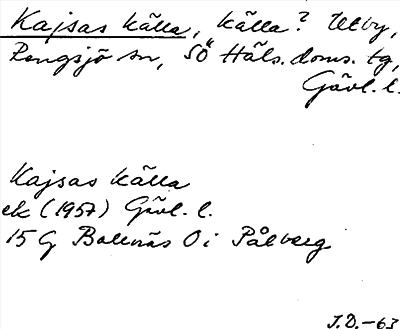 Kajsas källa, källa? Utby,
Rengsjö sn, SÖ Häls. doms. tg,
Gävl. l.
Kajsas källa
ek (1957) Gävl. l.
15 G Bollnäs Ö i Pålberg
J.D.-63